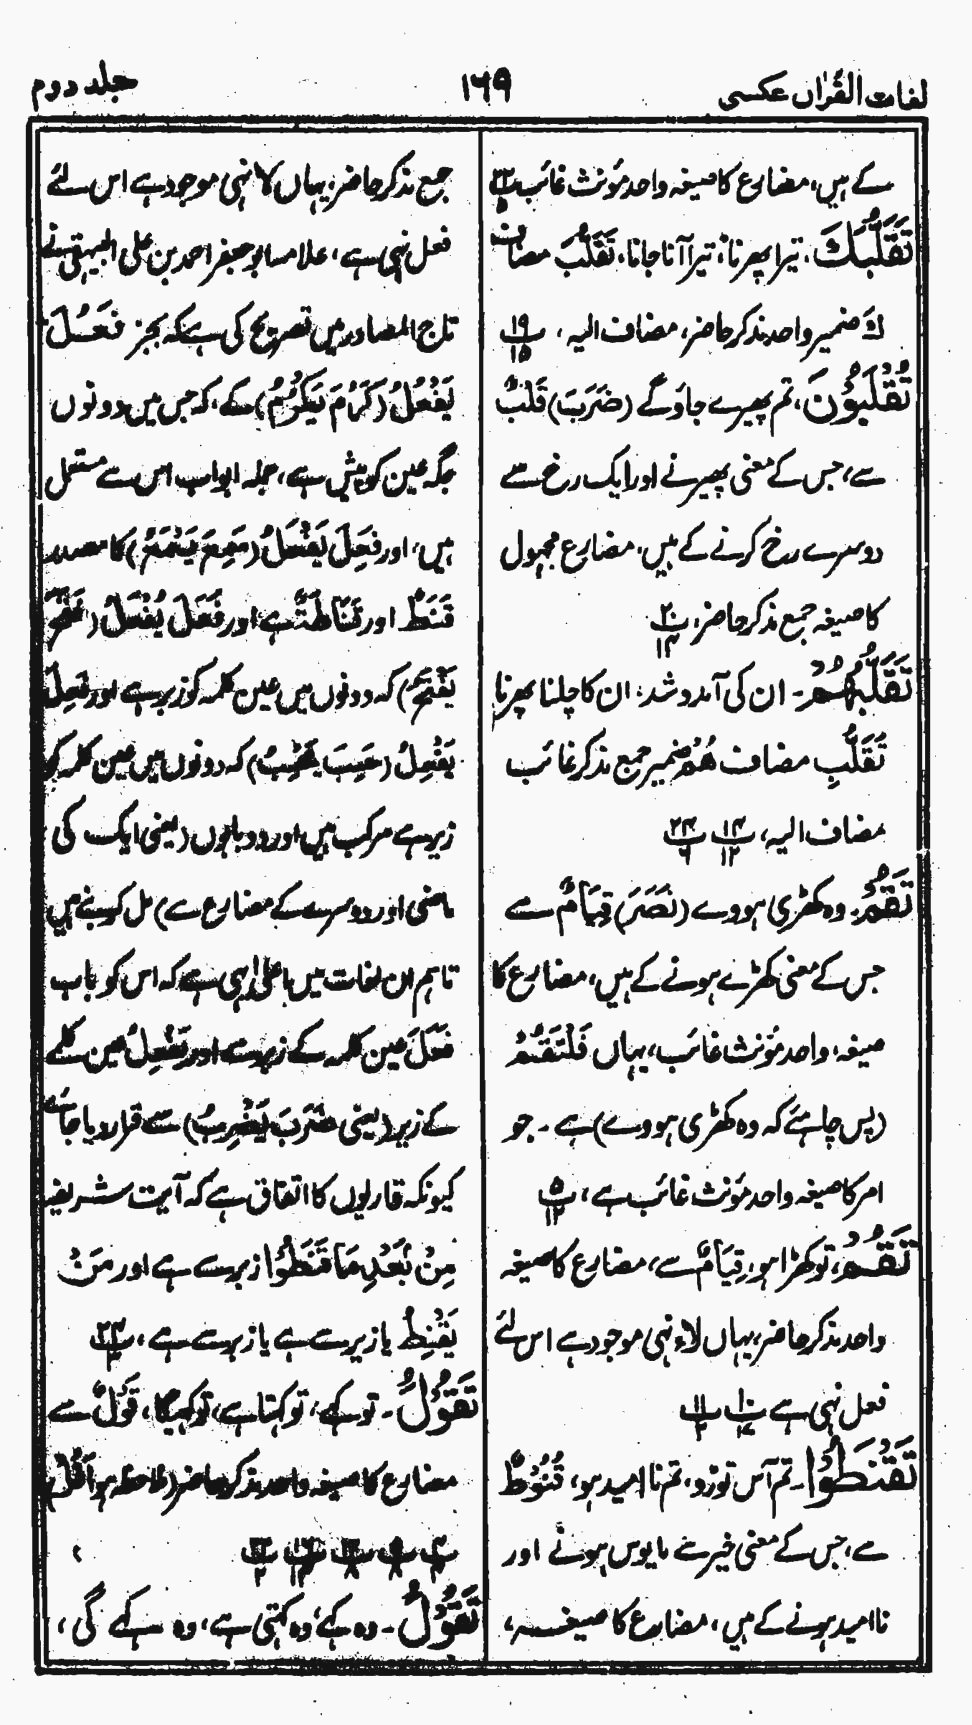 لغات القرآن عکسی
۱۶۹
جلد دوم
کے ہیں، مضارع کا صیغہ واحد مؤنث غائب
تَقَلُّبَكَ، تیرا پھرنا، تیرا آنا جانا، تَقَلُّبَ مضاف
كَ ضمیر واحد مذکر حاضر، مضاف الیہ، ۱۹/۱۵
تُقْلَبُوْنَ، تم پھیرے جاؤ گے (ضَرَبَ) قَلْبٌ
سے، جس کے معنی پھیرنے اور ایک رخ سے
دوسرے رخ کرنے کے ہیں، مضارع مجہول
کا صیغہ جمع مذکر حاضر، ۲۰/۱۴
تَقَلُّبُهُمْ۔ ان کی آمد و شد، ان کا چلنا پھرنا
تَقَلُّبِ مضاف هُمْ ضمیر جمع مذکر غائب
مضاف الیہ، ۱۴/۱۲ ۲۴/۶
تَقُمْ۔ وہ کھڑی ہووے (نَصَرَ) قِيَامٌ سے
جس کے معنی کھڑے ہونے کے ہیں، مضارع کا
صیغہ، واحد مؤنث غائب، یہاں فَلْتَقُمْ
(پس چاہئے کہ وہ کھڑی ہووے) ہے۔ جو
امر کا صیغہ واحد مؤنث غائب ہے، ۵/۱۲
تَقُمْ، تو کھڑا ہو، قِيَامٌ سے، مضارع کا صیغہ
واحد مذکر حاضر، یہاں لاء نہی موجود ہے اس لئے
فعل نہی ہے ۱۰/۱۷ ۱۱/۲
تَقْنَطُوْا۔ تم آس توڑو، تم نا امید ہو، قُنُوْطٌ
سے، جس کے معنی خیر سے مایوس ہونے اور
نا امید ہونے کے ہیں، مضارع کا صیغہ،
جمع مذکر حاضر، یہاں لا نہی موجود ہے اس لئے
فعل نہی ہے، علامہ ابو جعفر احمد بن علی البیہقی نے
تاج المصادر میں تصریح کی ہے کہ بجز فَعُلَ
يَفْعُلُ (كَرُمَ يَكْرُمُ) کے، کہ جس میں دونوں
جگہ عین کو پیش ہے، جملہ ابواب اس سے مستعمل
ہیں، اور فَعِلَ يَفْعَلُ کا مصدر
قَنَطٌ اور قَنَاطَةٌ ہے اور فَعَلَ يَفْعَلُ
کہ دونوں میں عین کلمہ کو زبر ہے اور فَعِلَ
يَفْعِلُ (حَسِبَ يَحْسِبُ) کہ دونوں میں عین کلمہ کو
زیر ہے مرکب ہیں اور دو بابوں (یعنی ایک کی
ماضی اور دوسرے کے مضارع سے) مل کر بنے ہیں
تاہم ان لغات میں اعلیٰ یہی ہے کہ اس کو باب
فَعَلَ عین کلمہ کے زبر سے اور يَفْعِلُ عین کلمے
کے زیر (یعنی ضَرَبَ يَضْرِبُ) سے قرار دیا جائے
کیونکہ قاریوں کا اتفاق ہے کہ آیت شریفہ
مِنْ بَعْدِ مَا قَنَطُوْا زبر سے ہے اور مَنْ
يَقْنِطُ یا زیر سے ہے یا زبر سے ہے،
تَقُوْلُ۔ تو کہے، تو کہتا ہے، تو کہیگا، قَوْلٌ سے
مضارع کا صیغہ واحد مذکر حاضر (ملاحظہ ہو اَقُلْ)
تَقُوْلُ۔ وہ کہے، وہ کہتی ہے، وہ کہے گی،